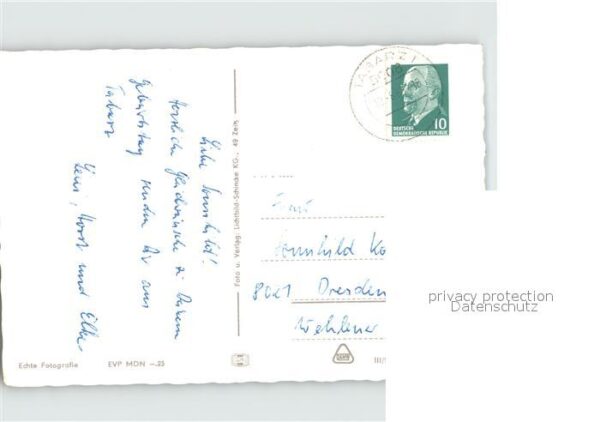 Liebe Sonnhild!
Herzliche Glückwünsche zu Deinem
Geburtstag senden Dir aus
Tabarz
Leni, Horst und Elke
Echte Fotografie
EVP MDN —.25
Foto u. Verlag: Lichtbild-Schincke KG., 49 Zeitz
TABARZ 1
5808
10
DEUTSCHE
DEMOKRATISCHE REPUBLIK
Sonnhild Ko
8021 Dresden
Wehlener
III/
privacy protection
Datenschutz